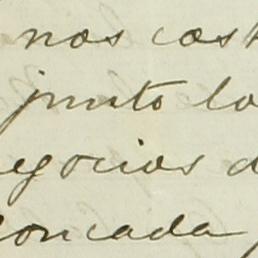 nos cost
junto lo
egocios d
loncada